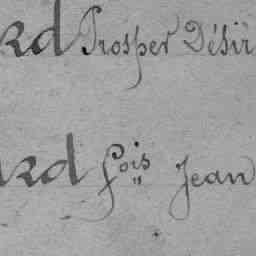 rd Prosper Désir
ard fois Jean